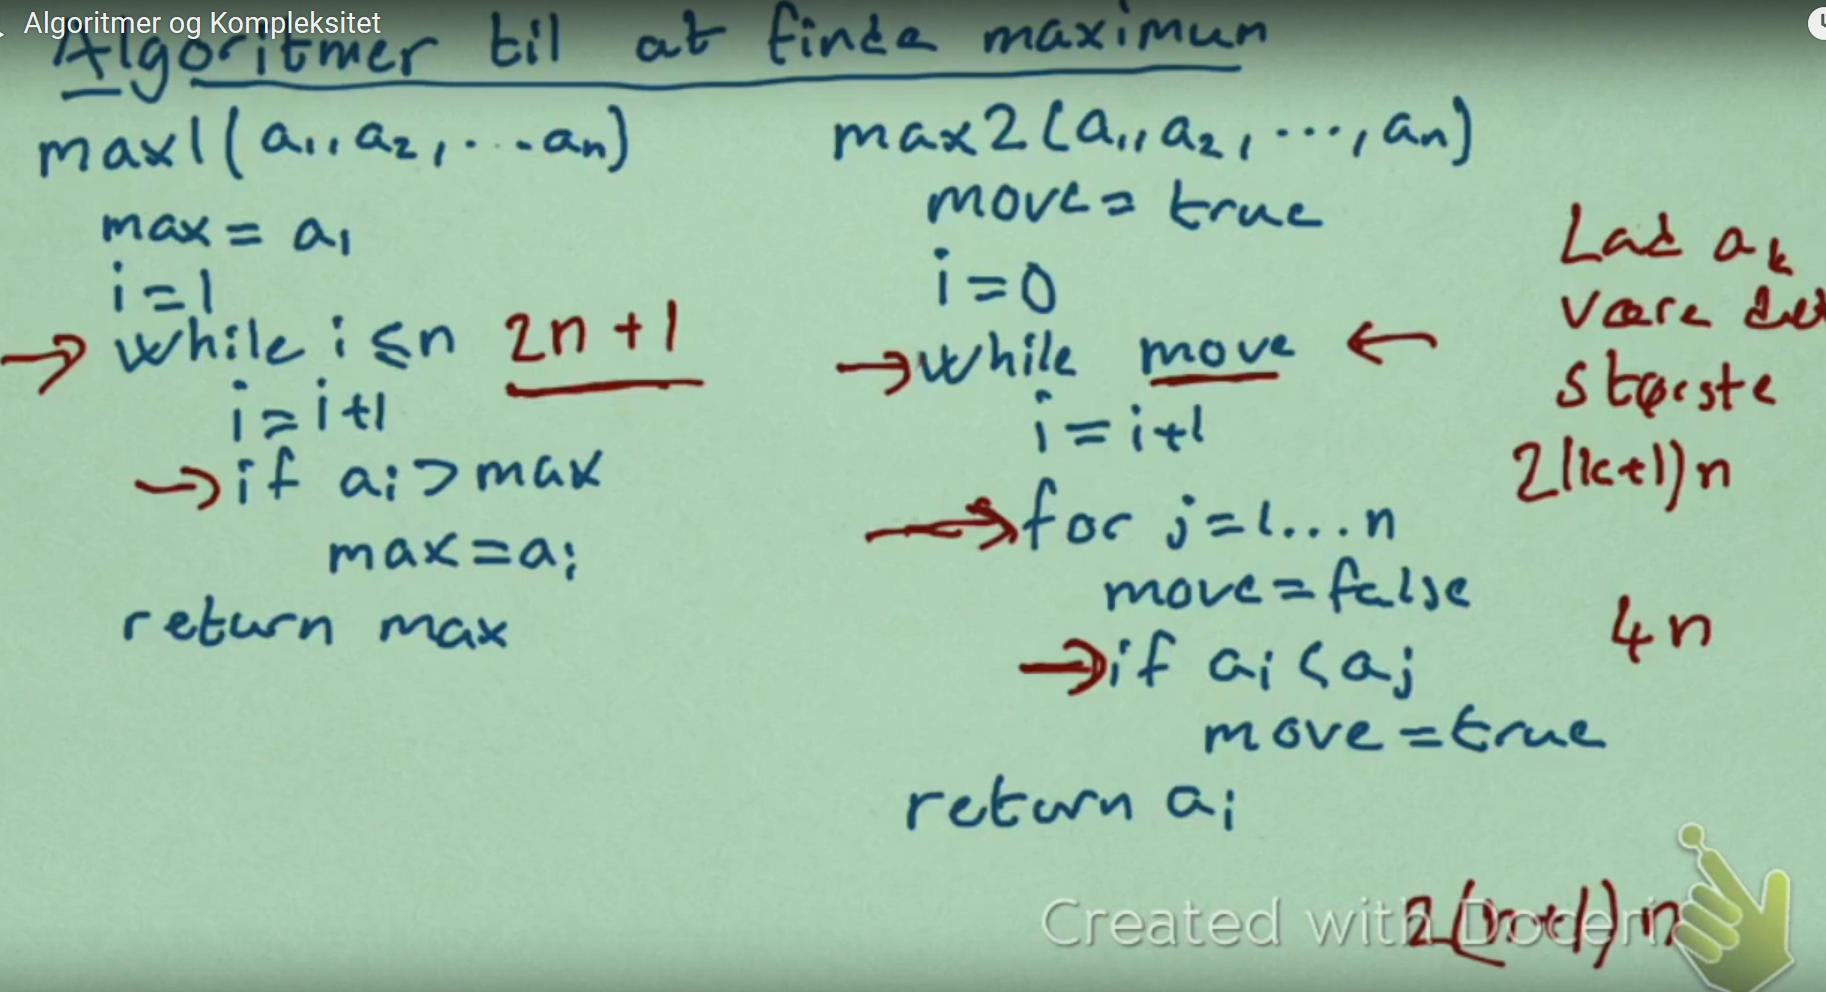 Algoritmer og Kompleksitet
Algoritmer til at finde maximum
max1(a1, a2, ... an)
max = a1
i = 1
while i ≤ n 2n + 1
i = i+1
if ai > max
max = ai
return max
max2(a1, a2, ..., an)
move = true
i = 0
while move
i = i+1
for j = 1...n
move = false
if ai < aj
move = true
return ai
Lad ak
være det
største
2(k+1)n
4n
2(n+1)n
Created with Doceri